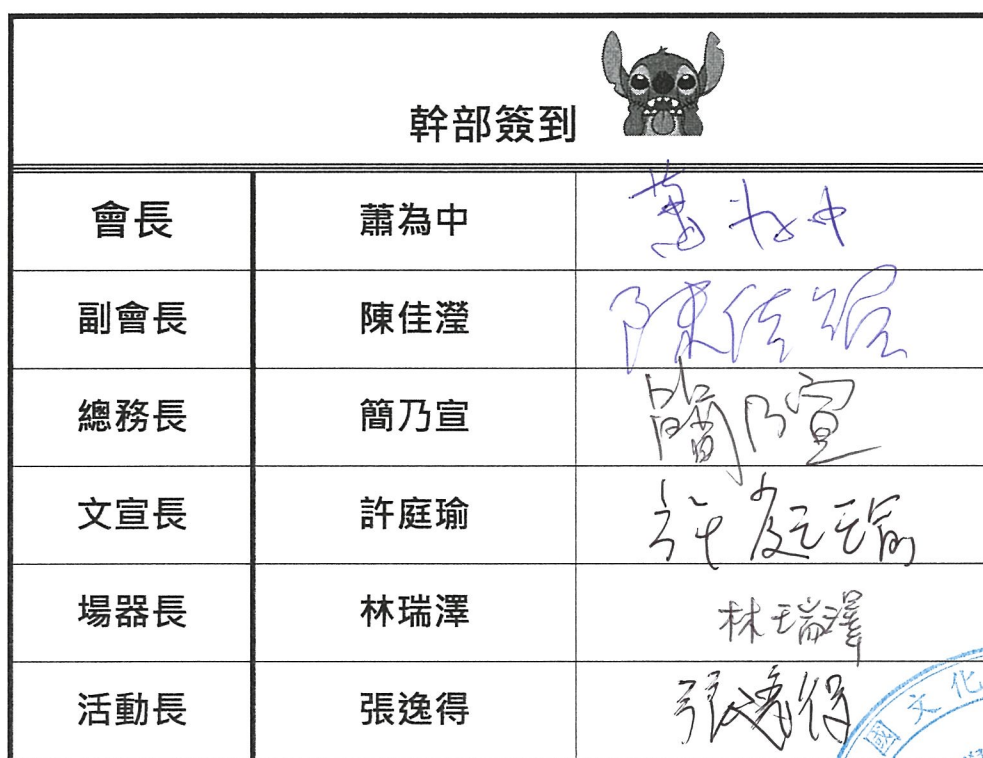 幹部簽到
會長 蕭為中 蕭为中
副會長 陳佳瀅 陳佳瀅
總務長 簡乃宣 簡乃宣
文宣長 許庭瑜 許庭瑜
場器長 林瑞澤 林瑞澤
活動長 張逸得 張逸得
國文化